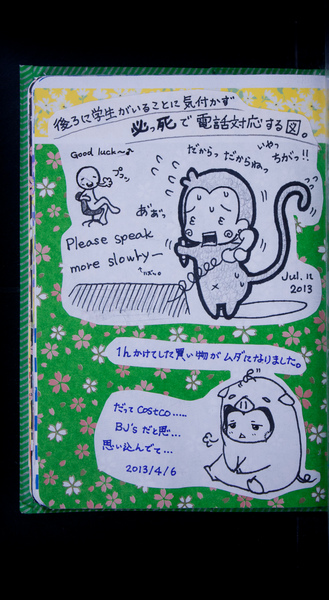 後ろに学生がいることに気付かず
必っ死で電話対応する図。
Good luck〜♪
プラン
だからっ だからねっ
いやっ
ちがっっ!!
あぁっ
Please speak
more slowly〜
Jul. 12
2013
1hかけてした買い物がムダになりました。
だってcostco.....
BJ'sだと思...
思い込んでて...
2013/4/6